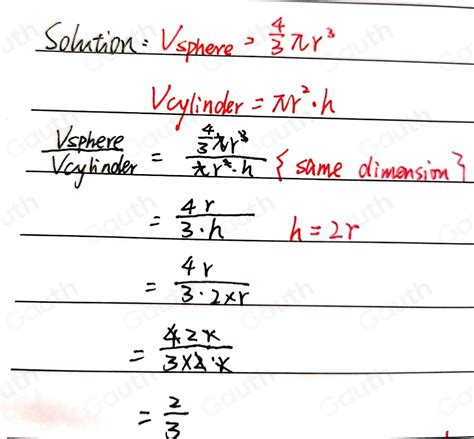 Solution: Vsphere = 4/3 πr³
Vcylinder = πr²·h
Vsphere/Vcylinder = (4/3 πr³)/(πr²·h) {same dimension}
= 4r/(3·h) h = 2r
= 4r/(3·2×r)
= 4 2r/(3×2·r)
= 2/3